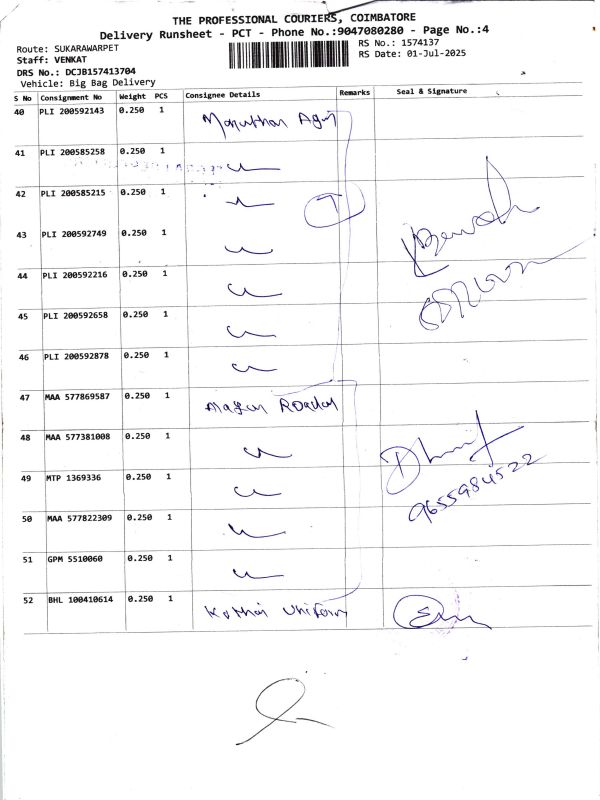 THE PROFESSIONAL COURIERS, COIMBATORE
Delivery Runsheet - PCT - Phone No.:9047080280 - Page No.:4
Route: SUKARAWARPET
RS No.: 1574137
Staff: VENKAT
RS Date: 01-Jul-2025
DRS No.: DCJB157413704
Vehicle: Big Bag Delivery
S No Consignment No Weight PCS Consignee Details Remarks Seal & Signature
40 PLI 200592143 0.250 1
41 PLI 200585258 0.250 1
42 PLI 200585215 0.250 1 7
43 PLI 200592749 0.250 1
44 PLI 200592216 0.250 1
45 PLI 200592658 0.250 1
46 PLI 200592878 0.250 1
47 MAA 577869587 0.250 1
48 MAA 577381008 0.250 1
49 MTP 1369336 0.250 1
9655984522
50 MAA 577822309 0.250 1
51 GPM 5510060 0.250 1
52 BHL 100410614 0.250 1 Kothai Uniform